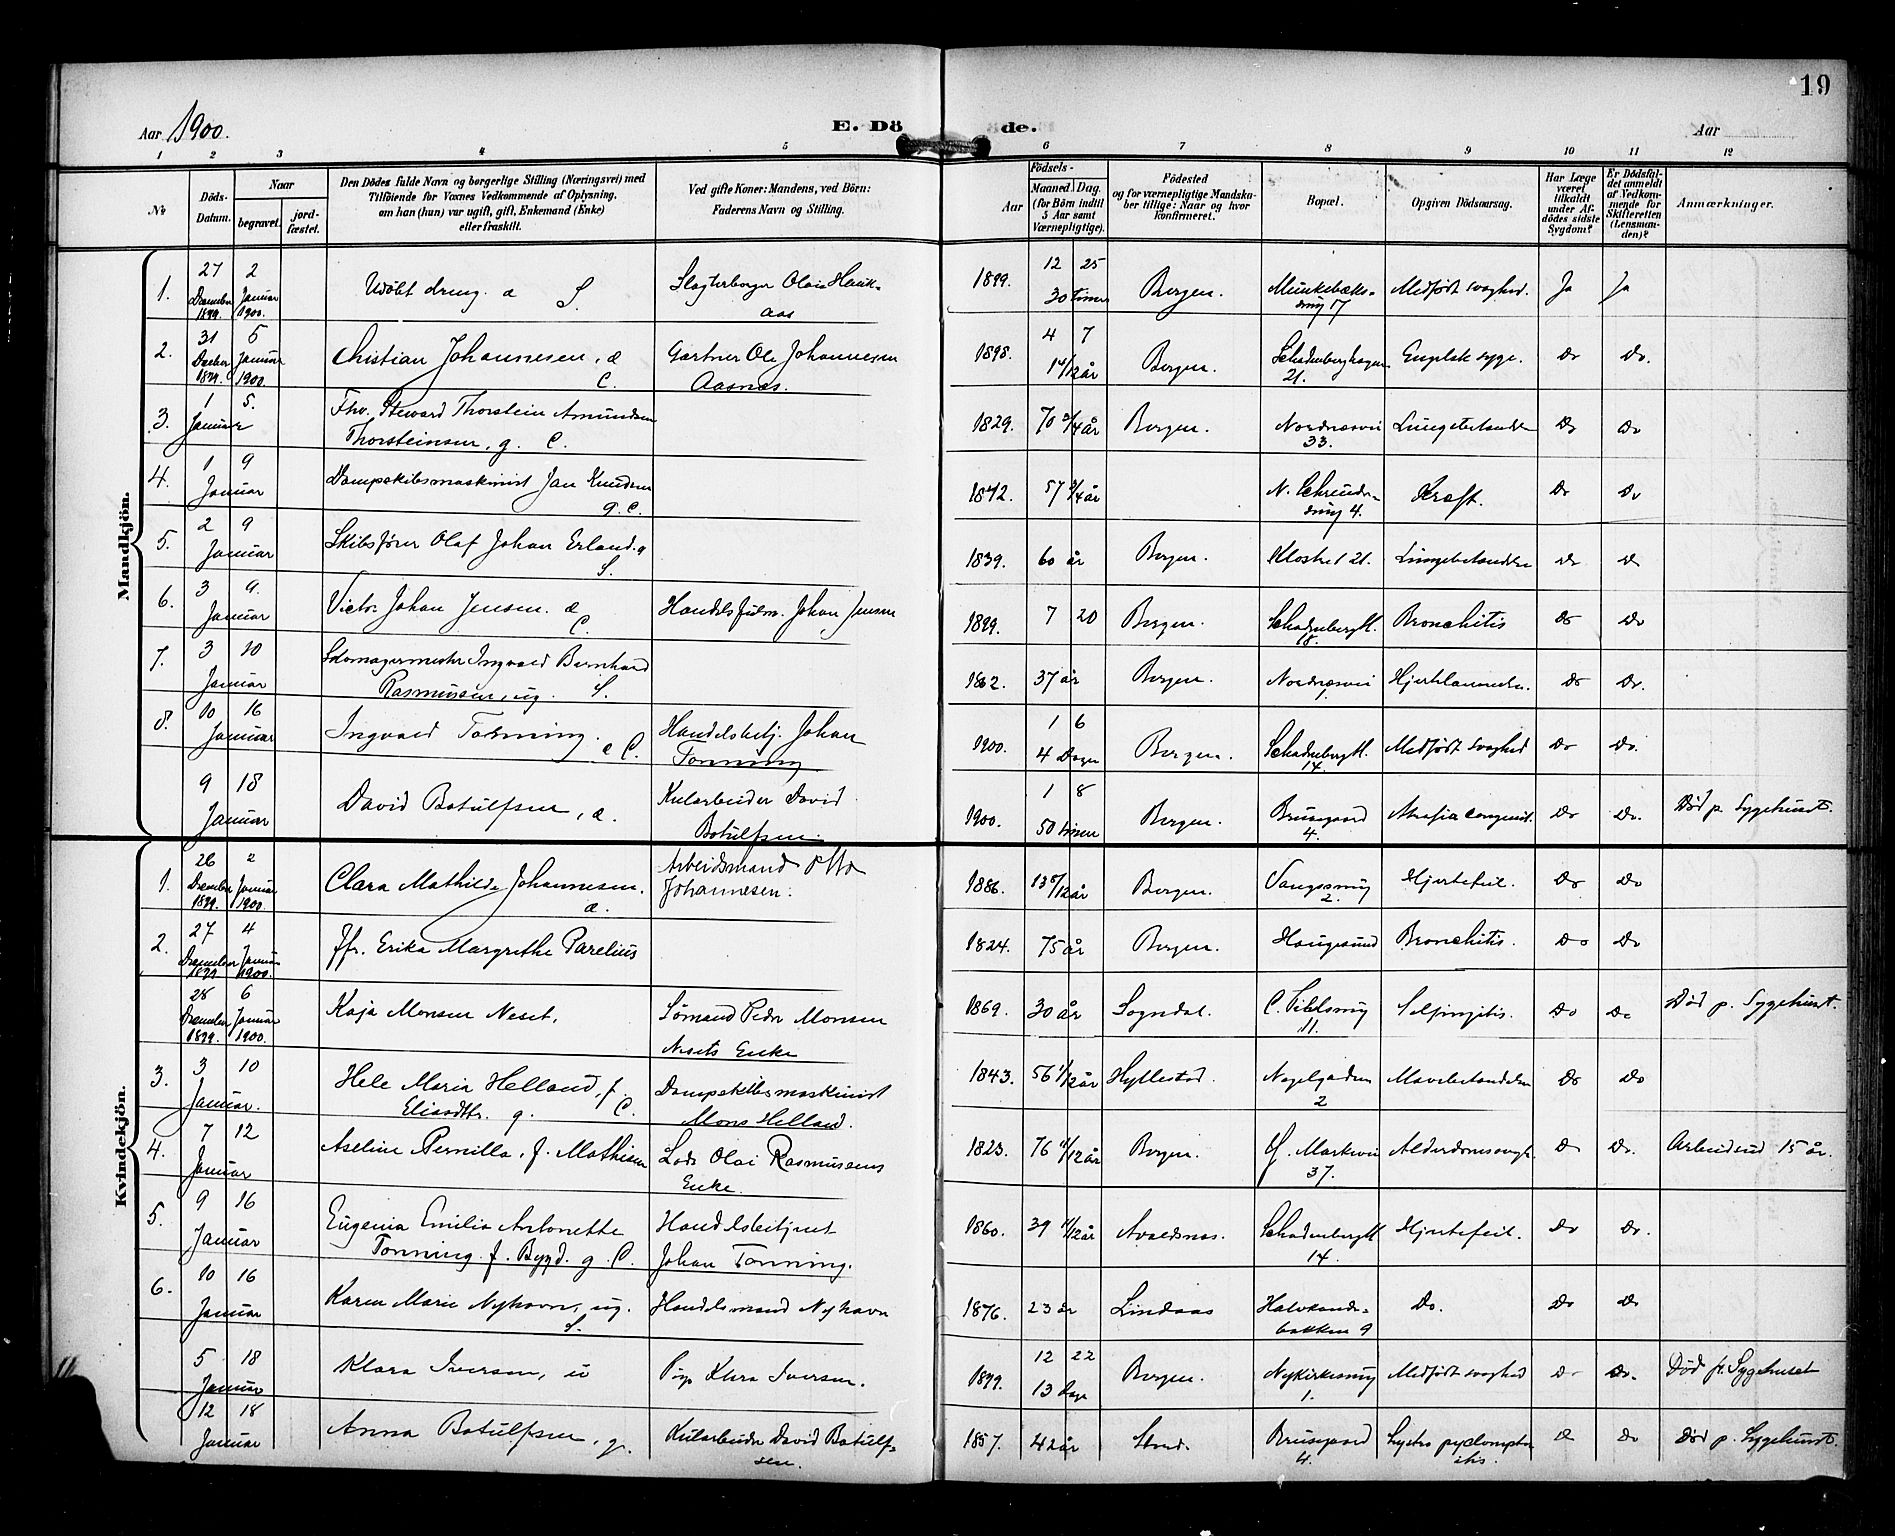 19
Aar 1900.
E. Döde.
Aar
1 2 3 4 5 6 7 8 9 10 11 12
№
Döds-Datum.
Naar
begravet.
jord-fæstet.
Den Dödes fulde Navn og borgerlige Stilling (Næringsvei) med
Tilföiende for Voxnes Vedkommende af Oplysning,
om han (hun) var ugift, gift, Enkemand (Enke)
eller fraskilt.
Ved gifte Koner: Mandens, ved Börn:
Faderens Navn og Stilling.
Födsels-
Aar
Maaned. Dag.
(for Börn indtil
5 Aar samt
Værnepligtige).
Födested
og for værnepligtige Mandska-
ber tillige: Naar og hvor
konfirmeret.
Bopæl.
Opgiven Dödsaarsag.
Har Læge
været
tilkaldt
under Af-
dödes sidste
Sygdom?
Er Dödsfal-
det anmeldt
af Vedkom-
mende for
Skifteretten
(Lensman-
den)?
Anmærkninger.
Mandkjön.
1. 27 December 1899. 2 Januar 1900. Udöbt dreng. S. Slagterborger Olai Hauk-
Aas 1899. 12 25 30 timer Bergen. Munkebæks-
smug 17 Medfödt svaghed. Ja Ja
2. 31 December 1899. 5 Januar 1900. Christian Johannesen, C. Gartner Ole Johannesen
Aasnes. 1898. 4 7 år Bergen. 21. Engelsk syge. Do Do.
3. 1 5. Januar Fhv. Steward Thorstein Amundsen
Thorsteinsen, g. C. 1829. 70 3/4 år Bergen. Nordnæsvei
33. Lungebetændelse Do Do
4. 1 9 Januar Dampskibsmaskinist Jan Knudsen
g. C. 1842. 57 3/4 år
4. Kræft. Do Do
5. 2 9 Januar Skibsförer Olaf Johan Erland. g
S. 1839. 60 år Bergen. Klostret 21. Lungebetændelse Do Do
6. 3 9. Januar Victor Johan Jensen.
C. Johan Jensen 1899. 7 20 Bergen. 18. Bronchitis Do Do
7. 3 10 Januar Skomagermester Ingvald Bernhard
Rasmussen, ug. S. 1862. 37 år Bergen. Nordnæsvei
1. Hjertelammelse. Do Do.
8. 10 16 Januar Ingvald Tonning.
C. Handelsbetj. Johan
Tonning 1900. 1 6 4 Dager Bergen. 14. Medfödt svaghed Do Do.
9 18 Januar David Botulfsen, Kularbeider David
Botulfsen. 1900. 1 8 50 timer Bergen. Brusegaard
4. Do Do. Död p. Sygehuset.
Kvindekjön.
1. 26 December 1899. 2 Januar 1900. Clara Mathilde Johannesen. Arbeidsmand Otto
Johannesen. 1886. 13 år Bergen. Vangssmug
2. Hjertefeil. Do Do
2. 27 December 1899 4 Januar 1900. Jfr. Erika Margrethe Parelius 1824. 75 år Bergen. Haugesund Bronchitis. Do Do
28 December 1899. 6 Januar 1900. Kaja Monsen Neset, Sömand Peder Monsen
Nesets Enke 1869. 30 år Sogndal. 11. Salpingitis. Do Do Död p. Sygehuset.
3. 3 10 Januar. Hele Maria Helland, f.
g. C. Dampskibsmaskinist
Mons Helland. 1843. 56 1/12 år Hyllestad. Nagelgaden
2 Mavebetændelse Do Do
4. 7 12 Januar Aseline Pernilla, f. Mathisen Lods Olai Rasmussens
Enke. 1823. 76 år Bergen. Markevei
37. Alderdomssvagh. Do Do. Arbeidsud 15 år.
5. 9 16 Januar Eugenia Emilia Antonette
Tonning f. Bygd. g. C. Handelsbetjent
Johan Tonning. 1860. 39 år Avaldsnæs. 14. Hjertefeil. Do Do.
6. 10 16 Januar Karen Marie Nyhavn, ug.
S. Handelsmand Nyhavn 1876. 23 år Lindaas Halvkande-
bakken 9 Do. Do Do
5 18 Januar Klara Iversen, u Pige Klara Iversen. 1899. 12 22 13 Dage Bergen. Nykirkesmug
1. Medfödt svaghed Do Do. Död p. Sygehuset
12 18 Januar Anna Botulfsen, g. Kularbeider David Botulf-
sen. 1857. 42 år Brusegaard
4. Do Do Död p. Sygehuset.